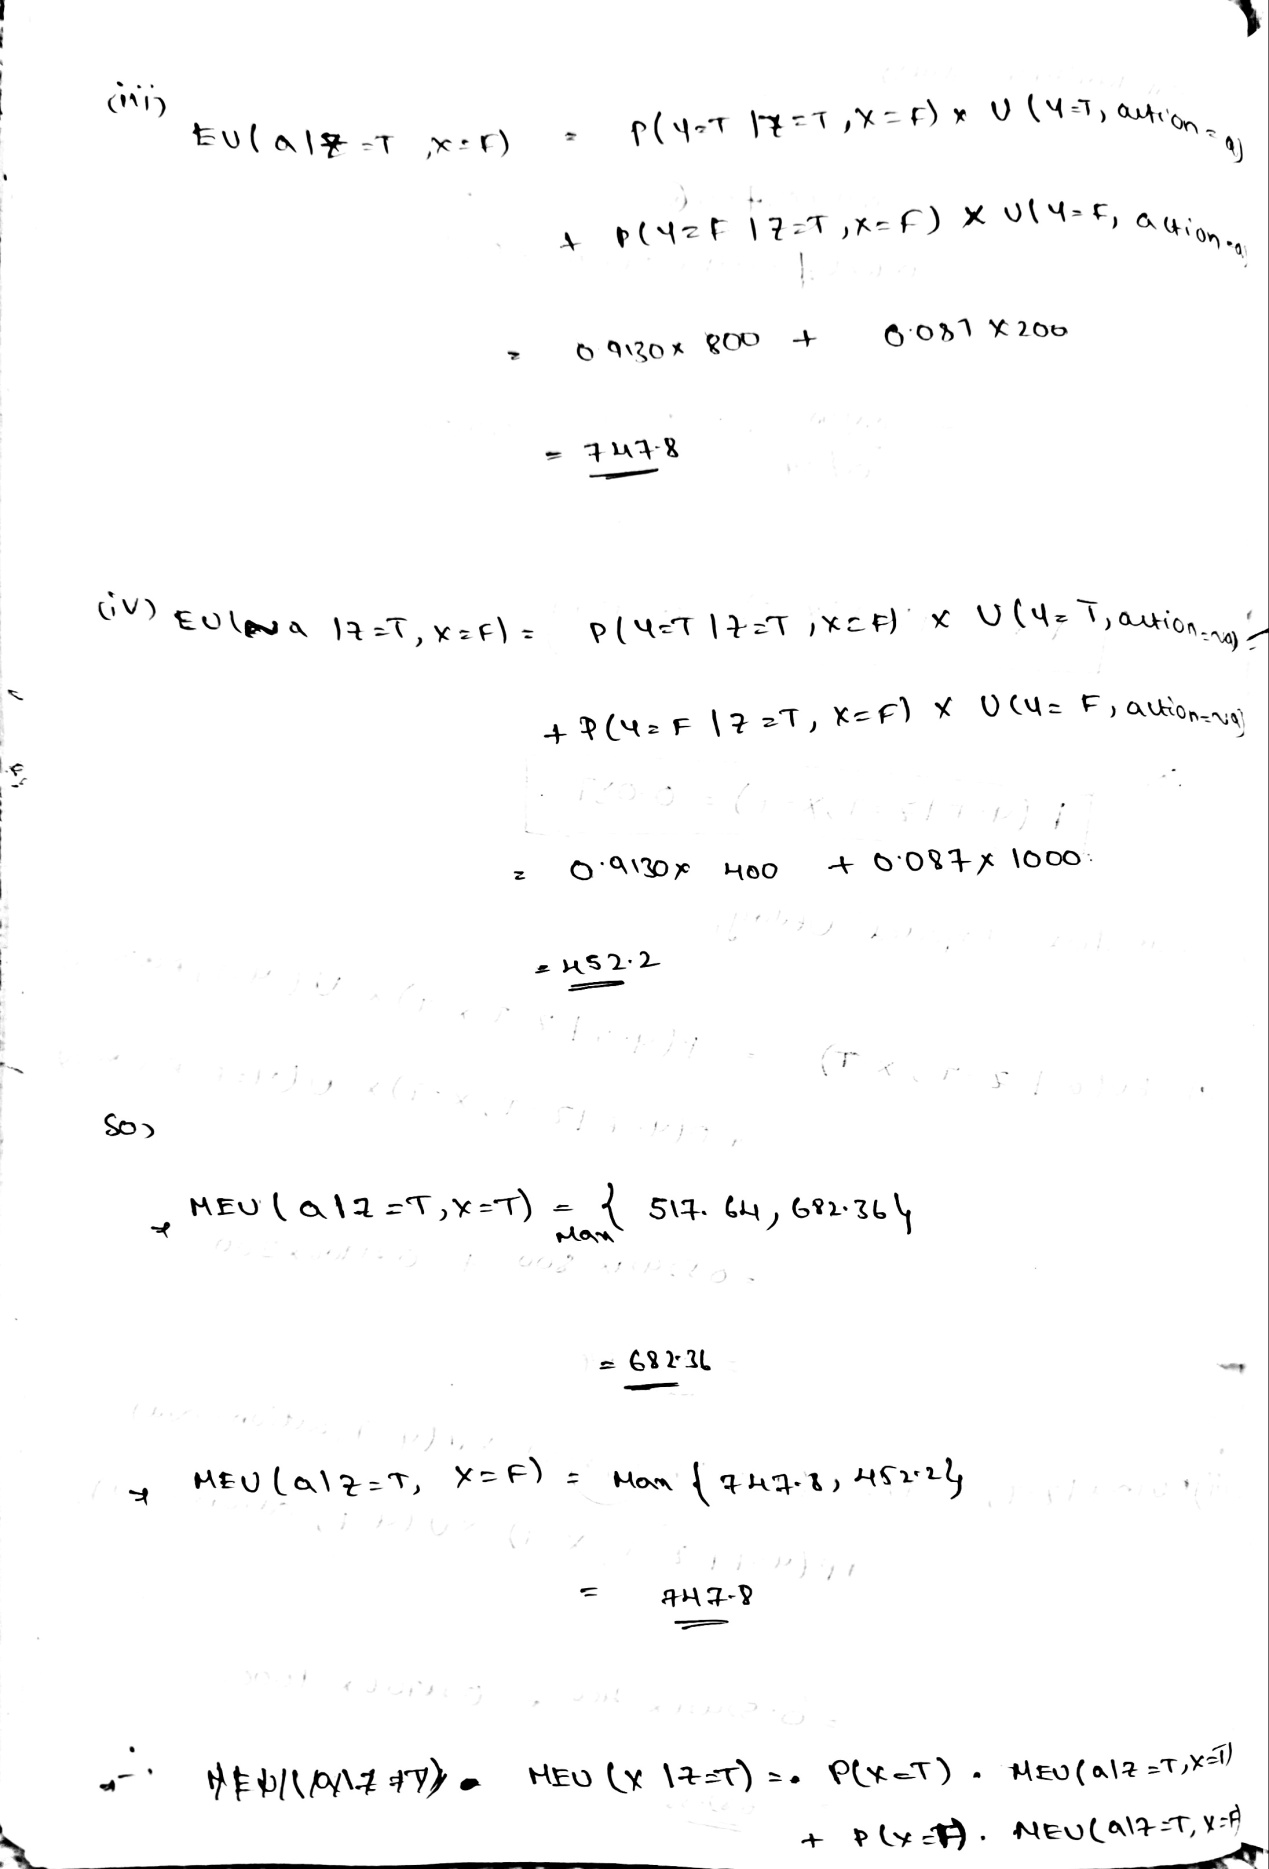 (iii)
EU(a|Z=T, X=F) = P(Y=T|Z=T, X=F) x U(Y=T, action=a)
+ P(Y=F|Z=T, X=F) x U(Y=F, action=a)
= 0.9130 x 800 + 0.087 x 200
= 747.8
(iv) EU(na|Z=T, X=F) = P(Y=T|Z=T, X=F) x U(Y=T, action=na)
+ P(Y=F|Z=T, X=F) x U(Y=F, action=na)
= 0.9130 x 400 + 0.087 x 1000
= 452.2
So,
* MEU(a|Z=T, X=T) = Max { 517.64, 682.36}
= 682.36
* MEU(a|Z=T, X=F) = Max {747.8, 452.2}
= 747.8
∴ MEU(X|Z=T) = P(X=T) . MEU(a|Z=T, X=T)
+ P(X=F). MEU(a|Z=T, X=F)